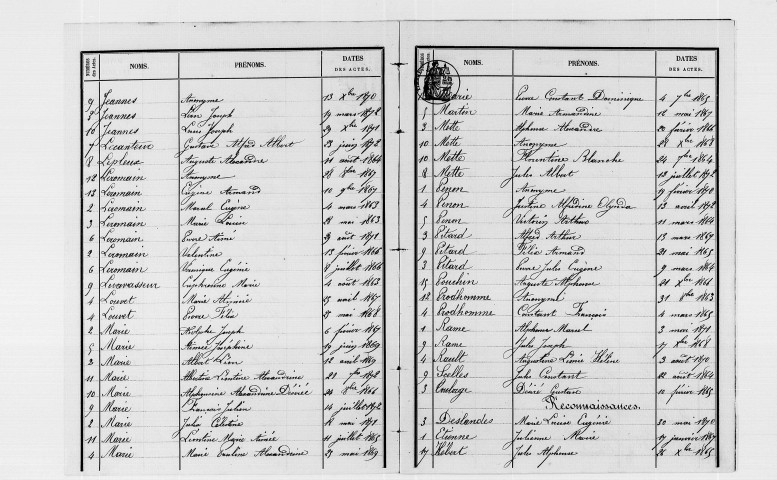 NUMÉROS des Actes. NOMS. PRÉNOMS. DATES DES ACTES.
9 Jeannes Anonyme 13 Xbre 1870
8 Jeannes Léon Joseph 19 mars 1872
16 Jeannes Louis Joseph 29 Xbre 1871
7 Lecanteur Gustave Alfred Albert 23 juin 1872
8 Lepleux Auguste Alexandre 11 août 1864
12 Leromain Anonyme 1867
13 Leromain Eugène Armand 10 9bre 1867
2 Leromain Marcel Eugène 4 mai 1863
3 Leromain Marie 21 mai 1863
6 Leromain Aimé 29 août 1871
2 Leromain Valentine 13 février 1866
6 Leromain Eugénie 8 juillet 1866
9 Levavasseur Euphrasine Marie 4 août 1863
4 Louvet Marie 25 avril 1867
4 Louvet Félix 21 mai 1868
2 Marie Joseph 6 février 1867
5 Marie Aimée Joséphine 19 juin 1869
3 Marie Albert Léon 12 avril 1869
11 Marie Albertine Léontine Alexandrine 28 7bre 1872
10 Marie Alphonsine Alexandrine Désirée 20 8bre 1866
9 Marie François Julien 14 juillet 1872
2 Marie Jules Célestin 18 mai 1871
11 Marie Léontine Marie Aimée 11 juillet 1865
4 Marie Marie Pauline Alexandrine 27 mai 1869
NOMS. PRÉNOMS. DATES DES ACTES.
Marie Constant Dominique 4 7bre 1865
5 Martin Marie Armandine 12 mai 1867
3 Mette Alexandre 20 février 1866
10 Mette Anonyme 28 Xbre 1868
10 Mette Florentine Blanche 24 7bre 1864
8 Mette Jules Albert 13 juillet 1872
1 Penon Anonyme 19 février 1870
4 Penon Justine 13 avril 1872
5 Penon Victorin Arthur 11 mars 1864
3 Pitard Alfred Arthur 13 mars 1867
9 Pitard Félix Armand 21 mai 1865
3 Pitard Jules Eugène 9 mars 1864
15 Auguste Alphonse 21 Xbre 1866
12 Prodhomme Anonyme 31 8bre 1863
4 Prodhomme Constant François 4 mars 1865
1 Rame Alphonse Marcel 3 mai 1871
9 Rame Jules Joseph 17 Xbre 1868
4 Rault Augustine Hélène 3 août 1870
9 Scelles Jules Constant 12 août 1864
3 Désiré Gustave 10 février 1865
Reconnaissances.
3 Deslandes Marie Louise Eugénie 30 mai 1870
1 Etienne Julienne Marie 17 janvier 1867
17 Hébert Jules Alphonse 26 Xbre 1865